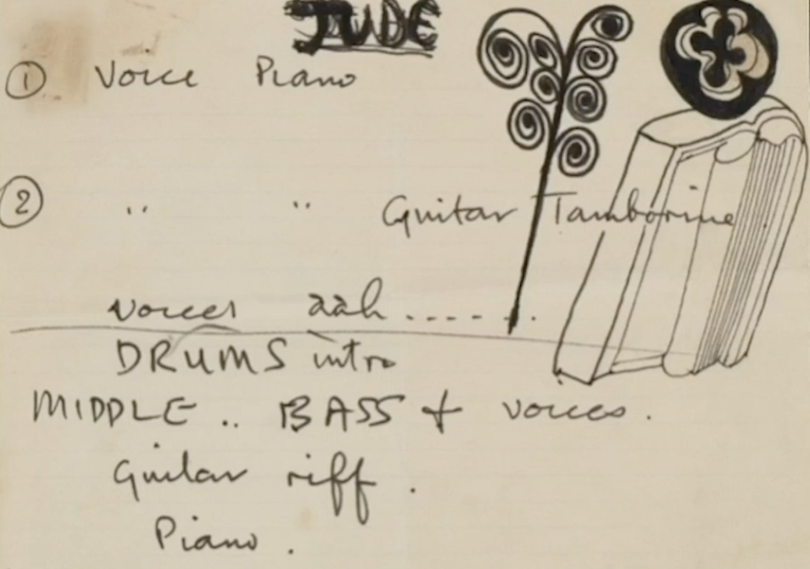 JUDE
① Voice Piano
② " " Guitar Tamborine
voices aah . . . . . .
DRUMS intro
MIDDLE .. BASS + voices.
Guitar riff.
Piano.